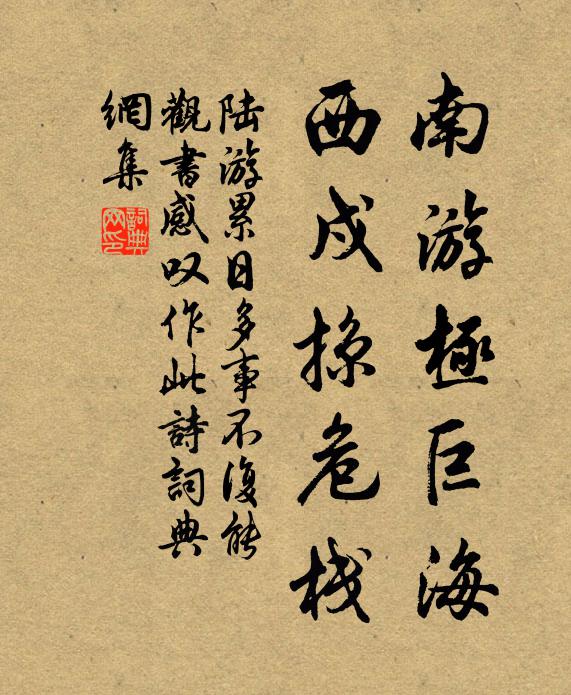 南游極巨海
西戍掠危栈
陆游累日多事不復能
觀書感叹作此詩詞典
網集
詞典网印